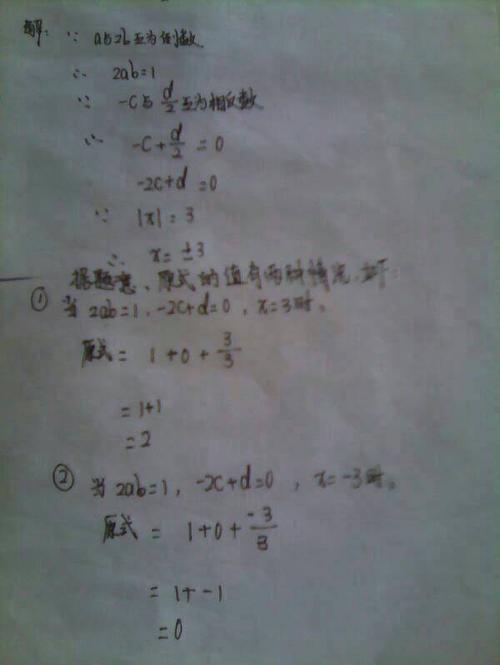 解: ∵ a与2b互为倒数
∴ 2ab=1
∵ -c与d/2互为相反数
∴ -c+d/2=0
-2c+d=0
∵ |x|=3
∴ x=±3
据题意、原式的值有两种情况,
① 当 2ab=1, -2c+d=0, x=3时。
原式= 1+0+3/3
=1+1
=2
② 当 2ab=1, -2c+d=0, x=-3时。
原式= 1+0+-3/3
= 1+-1
=0